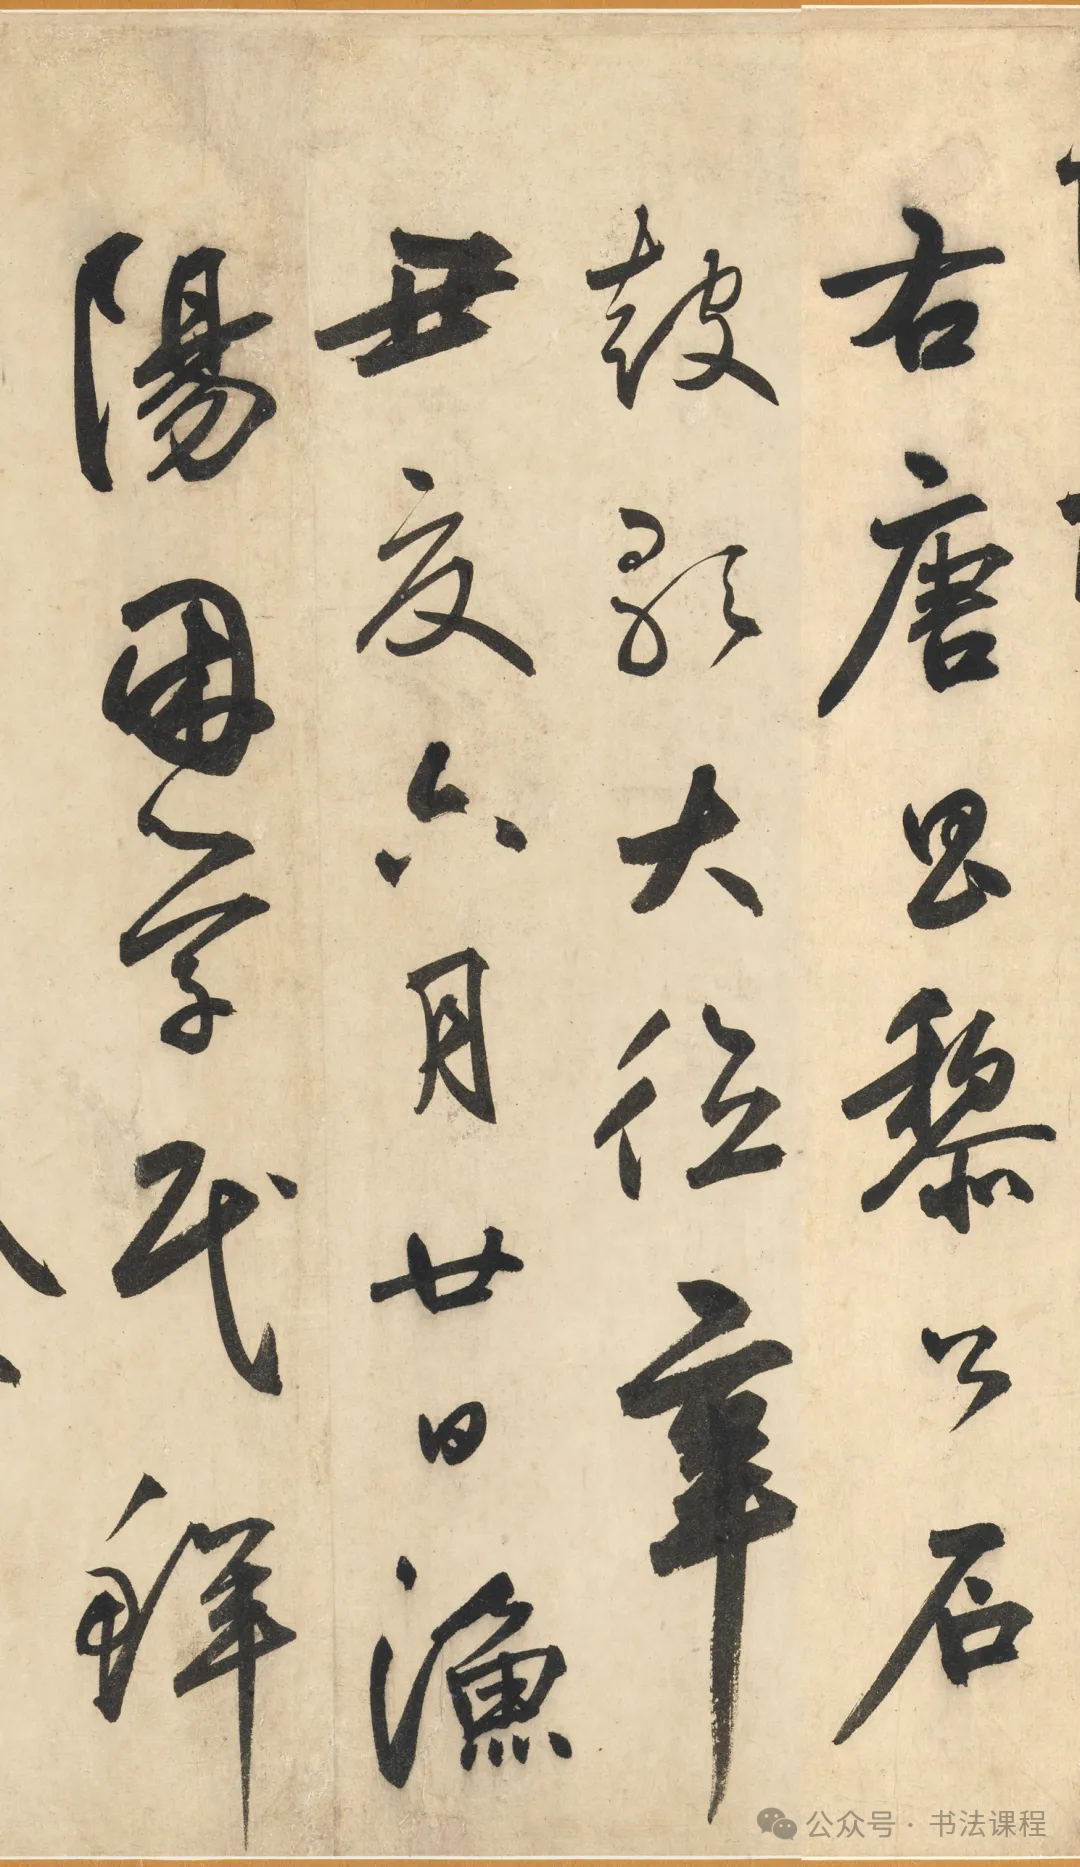 右唐昌黎公石
鼓歌大德辛
丑夏六月廿日漁
陽困學民鮮
公众号·书法课程